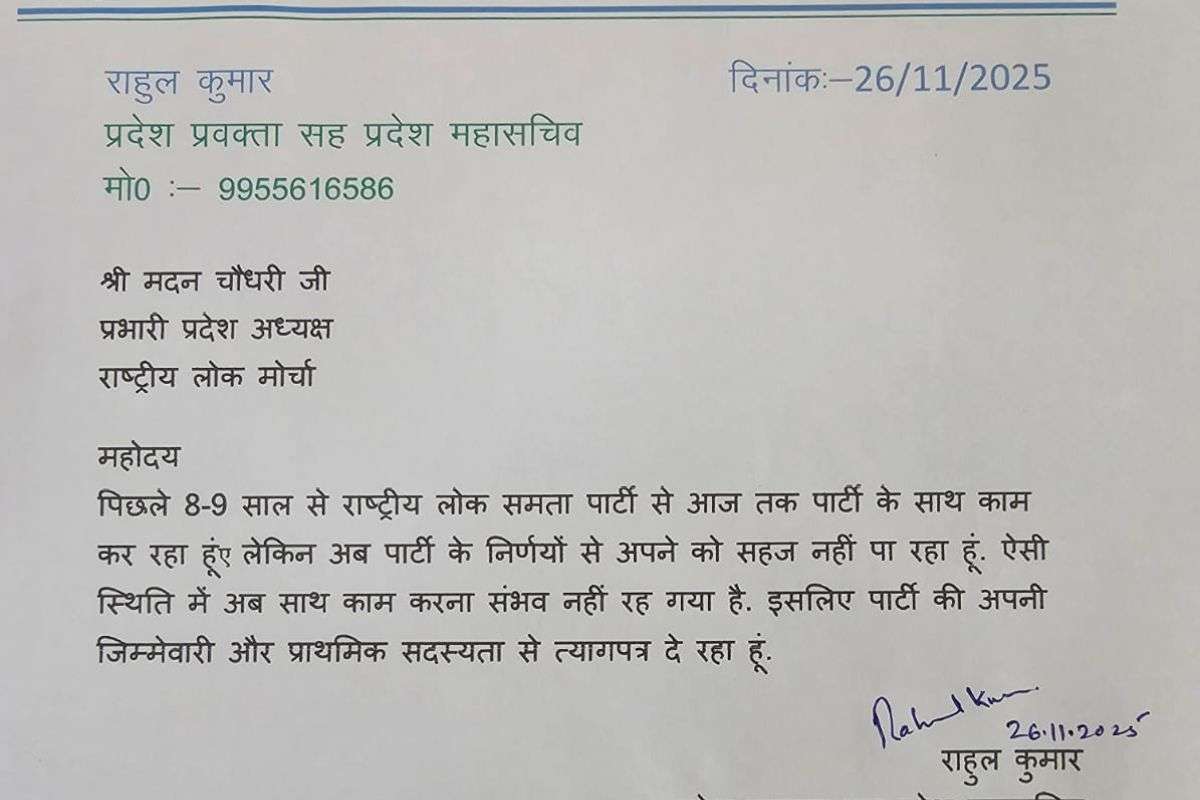 राहुल कुमार दिनांकः–26/11/2025
प्रदेश प्रवक्ता सह प्रदेश महासचिव
मो0 :– 9955616586
श्री मदन चौधरी जी
प्रभारी प्रदेश अध्यक्ष
राष्ट्रीय लोक मोर्चा
महोदय
पिछले 8-9 साल से राष्ट्रीय लोक समता पार्टी से आज तक पार्टी के साथ काम
कर रहा हूंए लेकिन अब पार्टी के निर्णयों से अपने को सहज नहीं पा रहा हूं. ऐसी
स्थिति में अब साथ काम करना संभव नहीं रह गया है. इसलिए पार्टी की अपनी
जिम्मेवारी और प्राथमिक सदस्यता से त्यागपत्र दे रहा हूं.
Rahul Kumar
26.11.2025
राहुल कुमार